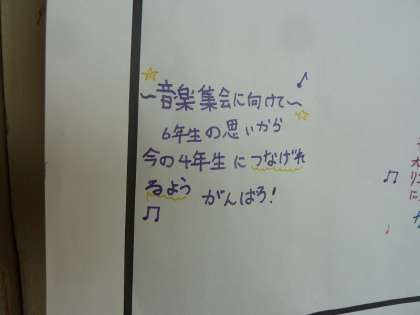 ～音楽集会に向けて～
6年生の思いから
今の4年生につなげれ
るよう がんばろ!